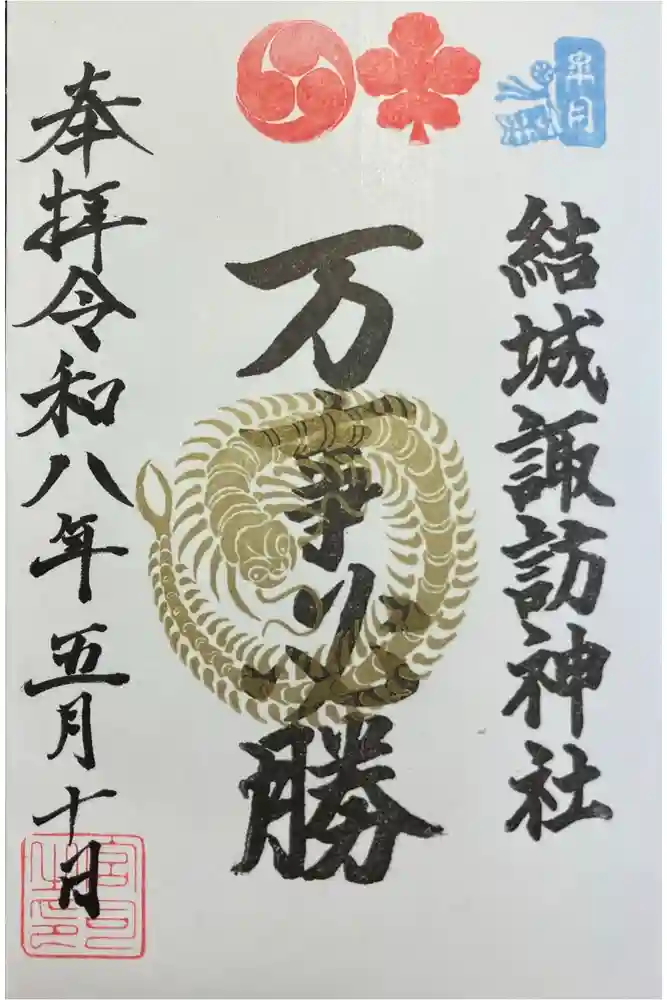 皐月
結城諏訪神社
万事必勝
奉拝令和八年五月十日
宮司之印